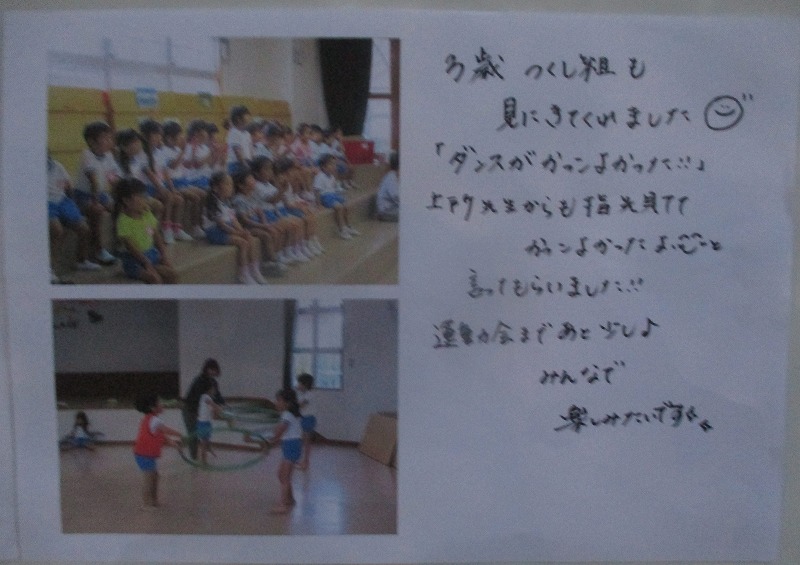 3歳 つくし組も
見にきてくれました
「ダンスがかっこよかった!!」
先生からも指先まで
かっこよかったよ と
言ってもらいました!!
運動会まであと少し♪
みんなで
楽しみたいです